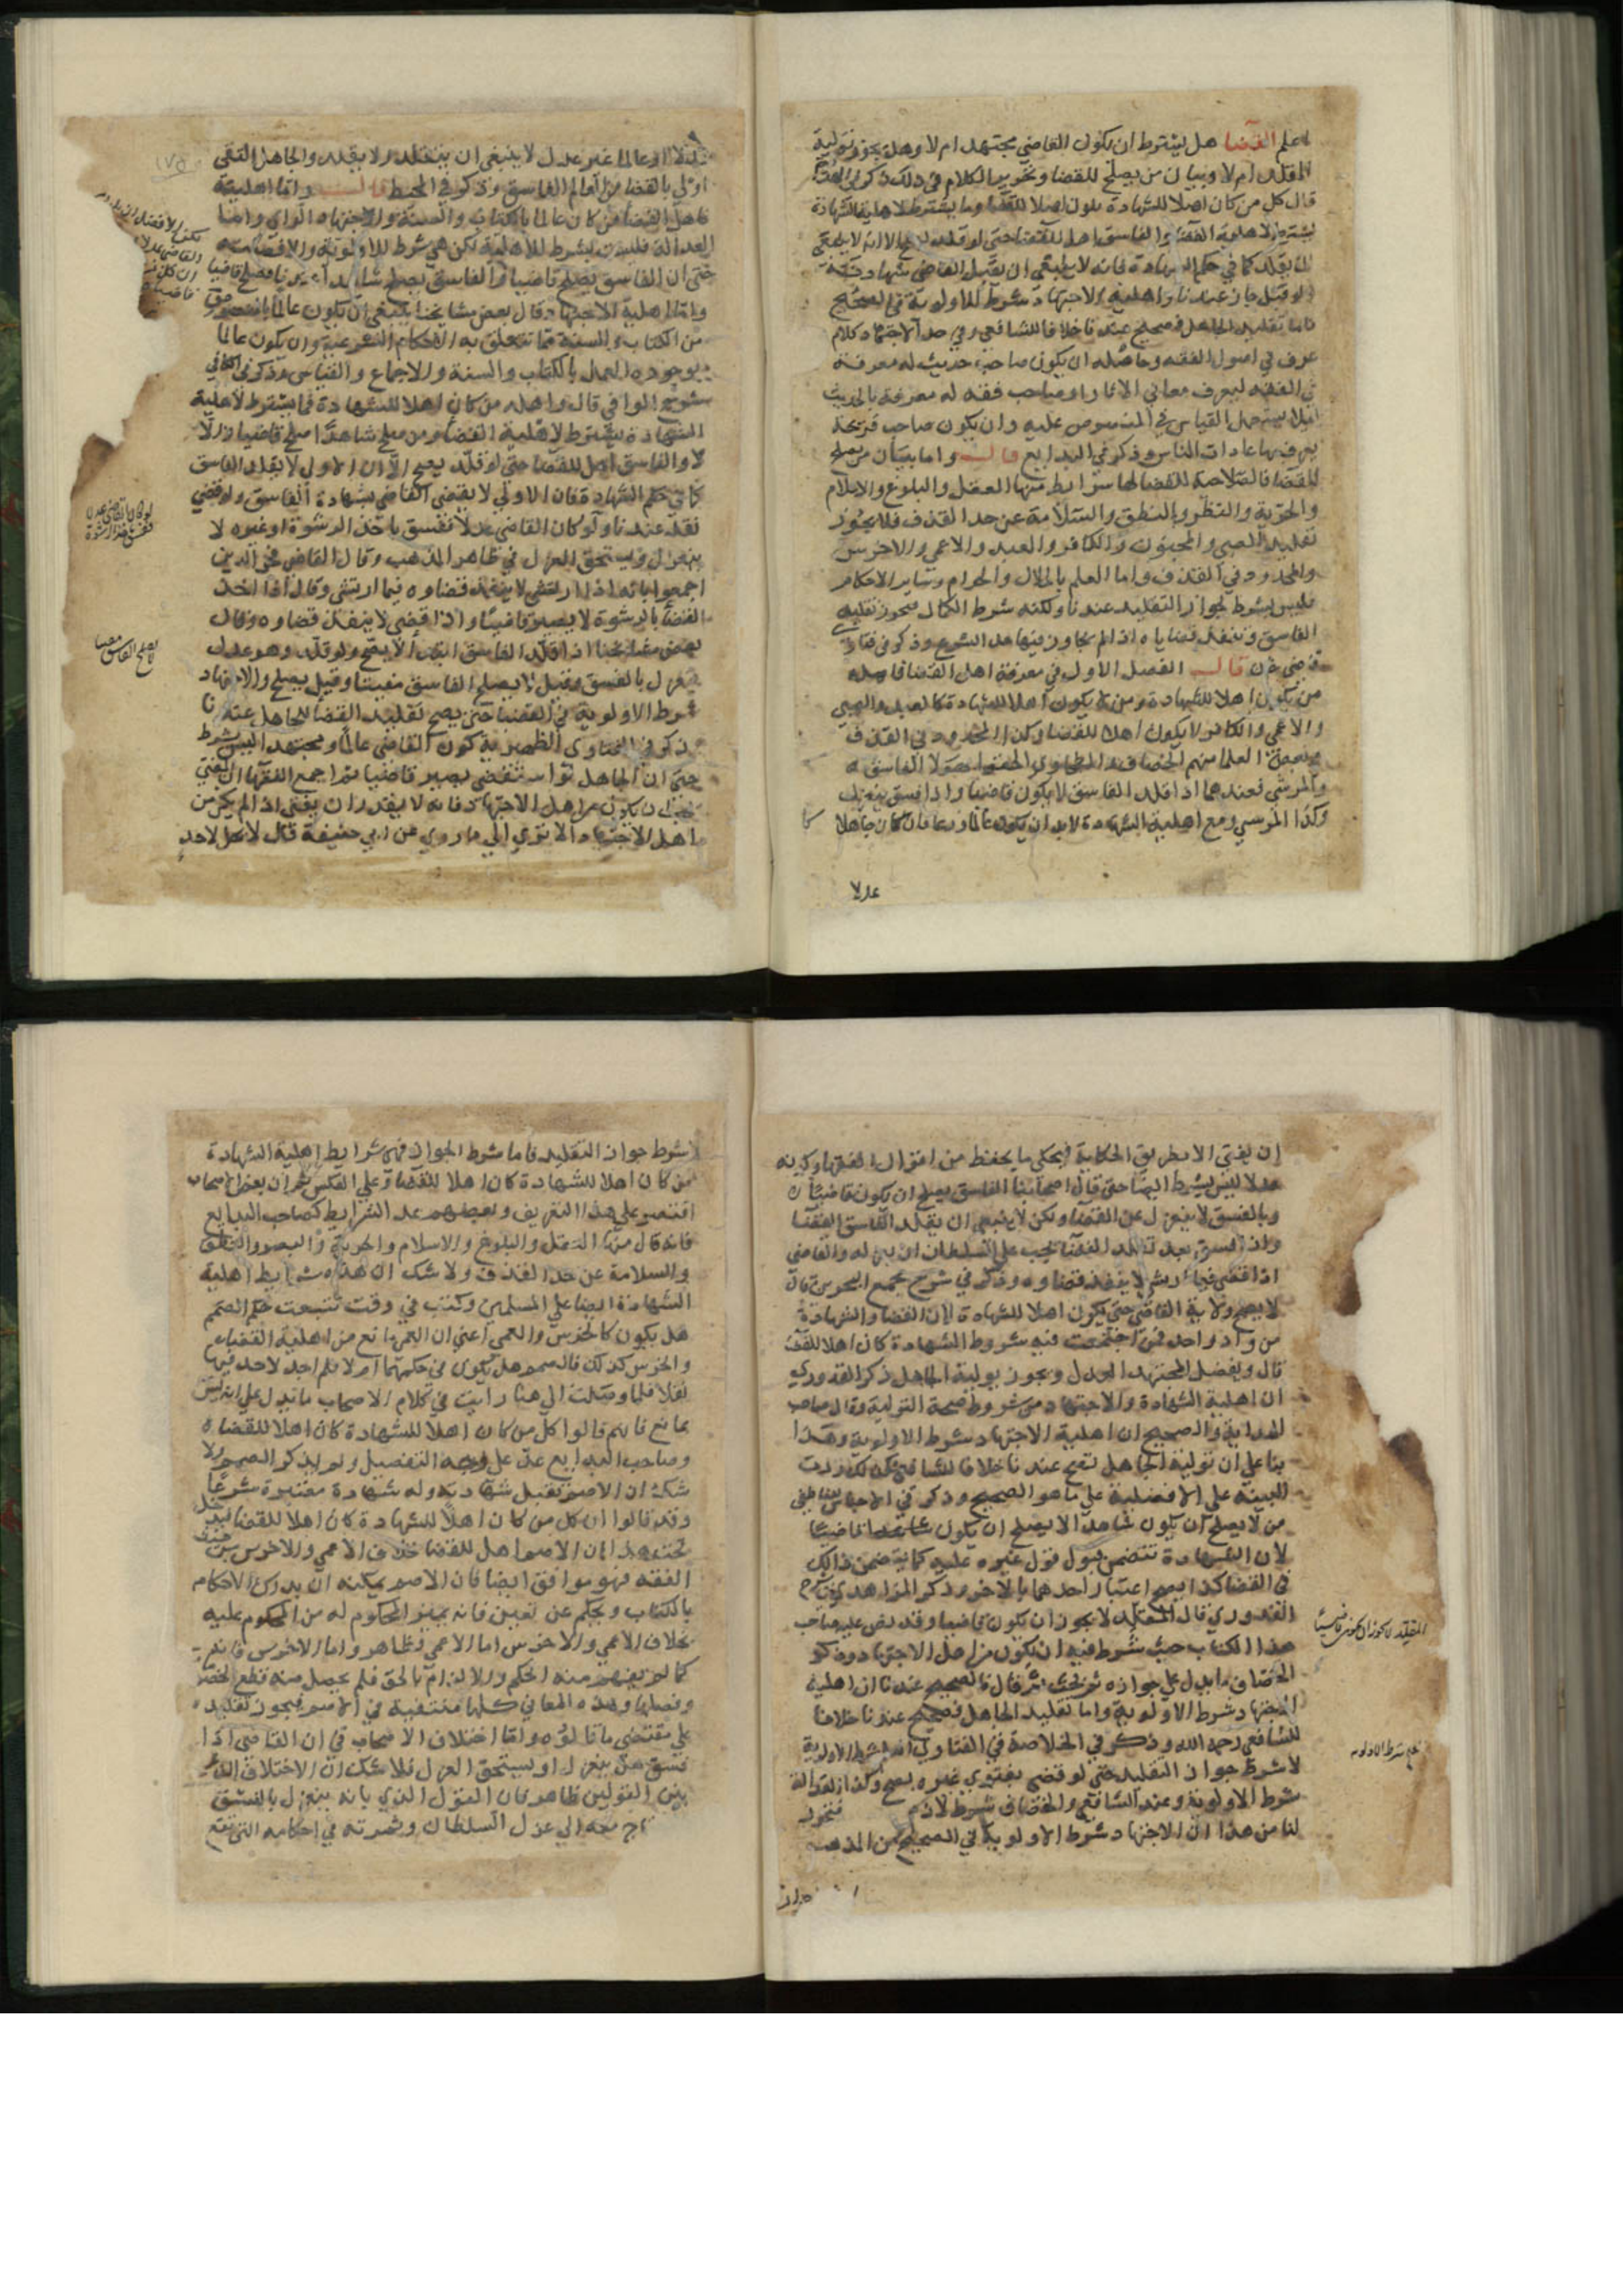 اعلم القضا هل يشترط ان يكون القاضي مجتهد ام لا وهل يجوز تولية
المقلد ام لا وبيان من يصلح للقضا وتحرير الكلام في ذلك ذكر في
قال كل من كان اهلا للشهادة يكون اهلا للقضا وما يشترط لاهلية الشهادة
يشترط لاهلية القضا والفاسق اهل للقضا حتى لو قلد يصح الا انه لا ينبغي
ان يقلد كما في حكم الشهادة فانه لا ينبغي ان يقبل القاضي شهادته
ولو قبل جاز عندنا واهلية الاجتهاد شرط الاولوية في الصحيح
فاما تقليد الجاهل فصحيح عندنا خلافا للشافعي وفي حد الاجتهاد كلام
عرف في اصول الفقه وحاصله ان يكون صاحب حديث له معرفة
في الفقه ليعرف معاني الاثار او صاحب فقه له معرفة بالحديث
ليلا يستعمل القياس في المنصوص عليه وان يكون صاحب قريحة
يعرف بها عادات الناس وذكر في البدايع قال واما بيان من يصلح
للقضا فالصلاحية للقضا لها شرايط منها العقل والبلوغ والاسلام
والحرية والنظر والنطق والسلامة عن حد القذف فلا يجوز
تقليد الصبي والمجنون والكافر والعبد والاعمي والاخرس
والمحدود في القذف واما العلم بالحلال والحرام وساير الاحكام
فليس بشرط لجواز التقليد عندنا ولكنه شرط الكمال فيجوز تقليد
الفاسق وتنفذ قضاياه اذا لم يجاوز فيها حد الشرع وذكر في فتاوي
قاضي خان قال الفصل الاول في معرفة اهل القضا فاهله
من يكون اهلا للشهادة ومن لا يكون اهلا للشهادة كالعبد والصبي
والاعمي والكافر لا يكون اهلا للقضا وكذا المحدود في القذف
وبعض العلما منهم الخصاف والطحاوي الحقوا بهولا الفاسق
والمرتشي فعندهما اذا قلد الفاسق لا يكون قاضيا واذا فسق ينعزل
وكذا المرتشي ومع اهلية الشهادة لابد ان يكون عالما ورعا فان كان جاهلا
عدلا
عدلا او عالما غير عدل لا ينبغي ان يتقلد ولا يقلد والجاهل التقي
اولي بالقضا من العالم الفاسق وذكر في المحيط قال واما اهلية
فاهل القضا من كان عالما بالكتاب والسنة والاجتهاد الراي واما
العدالة فليست بشرط للاهلية لكن هي شرط للاولوية
حتى ان الفاسق يصلح قاضيا والفاسق يصلح شاهدا عندنا فيصلح قاضيا
واما اهلية الاجتهاد قال بعض مشايخنا ينبغي ان يكون عالما
من الكتاب والسنة مما تتعلق به الاحكام الشرعية وان يكون عالما
بوجوه العمل بالكتاب والسنة والاجماع والقياس وذكر في الكافي
شرح الوافي قال واهله من كان اهلا للشهادة فما يشترط لاهلية
الشهادة يشترط لاهلية القضا ومن صلح شاهدا صلح قاضيا
لا والفاسق اهل للقضا حتى لو قلد يصح الا ان الاولي لا يقلد الفاسق
كما في حكم الشهادة فان الاولي لا يقضي القاضي بشهادة الفاسق ولو قضي
نفذ عندنا ولو كان القاضي عدلا ففسق باخذ الرشوة او غيره لا
ينعزل ويستحق العزل في ظاهر المذهب وقال القاضي فخر الدين
اجمعوا بانه اذا ارتشي لا ينفذ قضاوه فيما ارتشي وقال اذا اخذ
القضا بالرشوة لا يصير قاضيا واذا قضي لا ينفذ قضاوه وقال
بعض مشايخنا اذا قلد الفاسق ابتدا لا يصح ولو قلد وهو عدل
ينعزل بالفسق وقيل لا يصلح الفاسق مفتيا وقيل يصلح والاجتهاد
شرط الاولوية في القضا حتى يصح تقليد القضا للجاهل عندنا
ذكر في الفتاوي الظهيرية كون القاضي عالما ومجتهدا ليس بشرط
حتى ان الجاهل لو استقضي يصير قاضيا ثم اجمع الفقها ان المفتي
يجب ان يكون من اهل الاجتهاد فانه لا يقدر ان يفتي اذا لم يكن من
اهل الاجتهاد الا تري الي ما روي عن ابي حنيفة قال لا يحل لاحد
لو كان القاضي عدلا
ففسق باخذ الرشوة
لا يصلح الفاسق مفتيا
ان يفتي الا بطريق الحكاية فيحكي ما يحفظ من اقوال الفقها وكونه
عدلا ليس بشرط ايضا حتى قال اصحابنا الفاسق يصلح ان يكون قاضيا
وبالفسق لا ينعزل عن القضا ولكن لا ينبغي ان يقلد الفاسق القضا
واذا فسق بعد تقلد القضا يجب علي السلطان ان يعزله والقاضي
اذا قضي فيما ارتشي لا ينفذ قضاوه وذكر في شرح مجمع البحرين قال
لا يصح ولاية القاضي حتى يكون اهلا للشهادة لان القضا والشهادة
من واد واحد فمن اجتمعت فيه شروط الشهادة كان اهلا للقضا
قال ويفضل المجتهد العدل ويجوز تولية الجاهل ذكر القدوري
ان اهلية الشهادة والاجتهاد من شروط صحة التولية وقال صاحب
الهداية والصحيح ان اهلية الاجتهاد شرط الاولوية وهذا
بنا علي ان تولية الجاهل تصح عندنا خلافا للشافعي
البينة علي الافضلية علي ما هو الصحيح وذكر في الاجناس
من لا يصلح ان يكون شاهدا لا يصلح ان يكون قاضيا
لان الشهادة تتضمن قبول قول غيره عليه
في القضا كذا يصح اعتبار احدهما بالاخر وذكر الزاهدي في شرح
القدوري قال المقلد لا يجوز ان يكون قاضيا وقد نص عليه صاحب
هذا الكتاب حيث شرط فيه ان يكون من اهل الاجتهاد وذكر
الخصاف ما يدل علي جوازه قال فالصحيح عندنا ان اهلية
الاجتهاد شرط الاولوية واما تقليد الجاهل فصحيح عندنا خلافا
للشافعي رحمه الله وذكر في الخلاصة في الفتاوي انه شرط الاولوية
لا شرط جواز التقليد حتى لو قضي بفتوي غيره يصح وكذا العدالة
شرط الاولوية وعند الشافعي والخصاف شرط لازم فتحرر
لنا من هذا ان الاجتهاد شرط الاولوية في الصحيح من المذهب
المقلد لا يجوز ان يكون قاضيا
شرط الاولوية
لا شرط جواز التقليد فاما شرط الجواز فهي شرايط اهلية الشهادة
فمن كان اهلا للشهادة كان اهلا للقضا وعلي العكس ثم ان بعض الاصحاب
اقتصر علي هذا التعريف وبعضهم عد الشرايط كصاحب البدايع
فانه قال منها العقل والبلوغ والاسلام والحرية والبصر والنطق
والسلامة عن حد القذف ولا شك ان هذه شرايط اهلية
الشهادة ايضا علي المسلمين وكنت في وقت تتبعت حكم الصمم
هل يكون كالخرس والعمي اعني ان العمي مانع من اهلية القضاء
والخرس كذلك فالصمم هل يكون في حكمهما ام لا فلم اجد لاحد فيها
نقلا فلما وصلت الي هنا رايت في كلام الاصحاب ما يدل علي انه ليس
بمانع فانهم قالوا كل من كان اهلا للشهادة كان اهلا للقضاء
وصاحب البدايع عد علي وجه التفصيل ولم يذكر الصمم ولا
شك ان الاصم تقبل شهادته وله شهادة معتبرة شرعا
وقد قالوا ان كل من كان اهلا للشهادة كان اهلا للقضا فيدخل
تحته هذا لان الاصم اهل للقضا خلاف الاعمي والاخرس من حيث
الفقه فهو موافق ايضا فان الاصم يمكنه ان يدرك الاحكام
بالكتاب ويحكم عن تعين فانه يميز المحكوم له من المحكوم عليه
بخلاف الاعمي والاخرس اما الاعمي فظاهر واما الاخرس فانه
كما لو يفهم منه الحكم والالزام بالحق فلم يحصل منه قطع الخصومة
وفصلها وهذه المعاني كلها منتفية في الاصم فيجوز تقليده
علي مقتضي ما قالوه واما اختلاف الاصحاب في ان القاضي اذا
فسق هل ينعزل او يستحق العزل فلا شك ان الاختلاف الذي
بين القولين ظاهر فان القول الذي بانه ينعزل بالفسق
معه الي عزل السلطان وثمرته في احكامه التي تقع